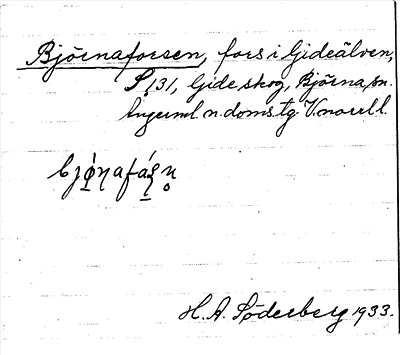 Björnaforsen, fors i Gideälven,
S 131, Gide skog, Björna sn.
Ångerml. n. doms.tg V.norrl. l.
H. A. Söderberg 1933.